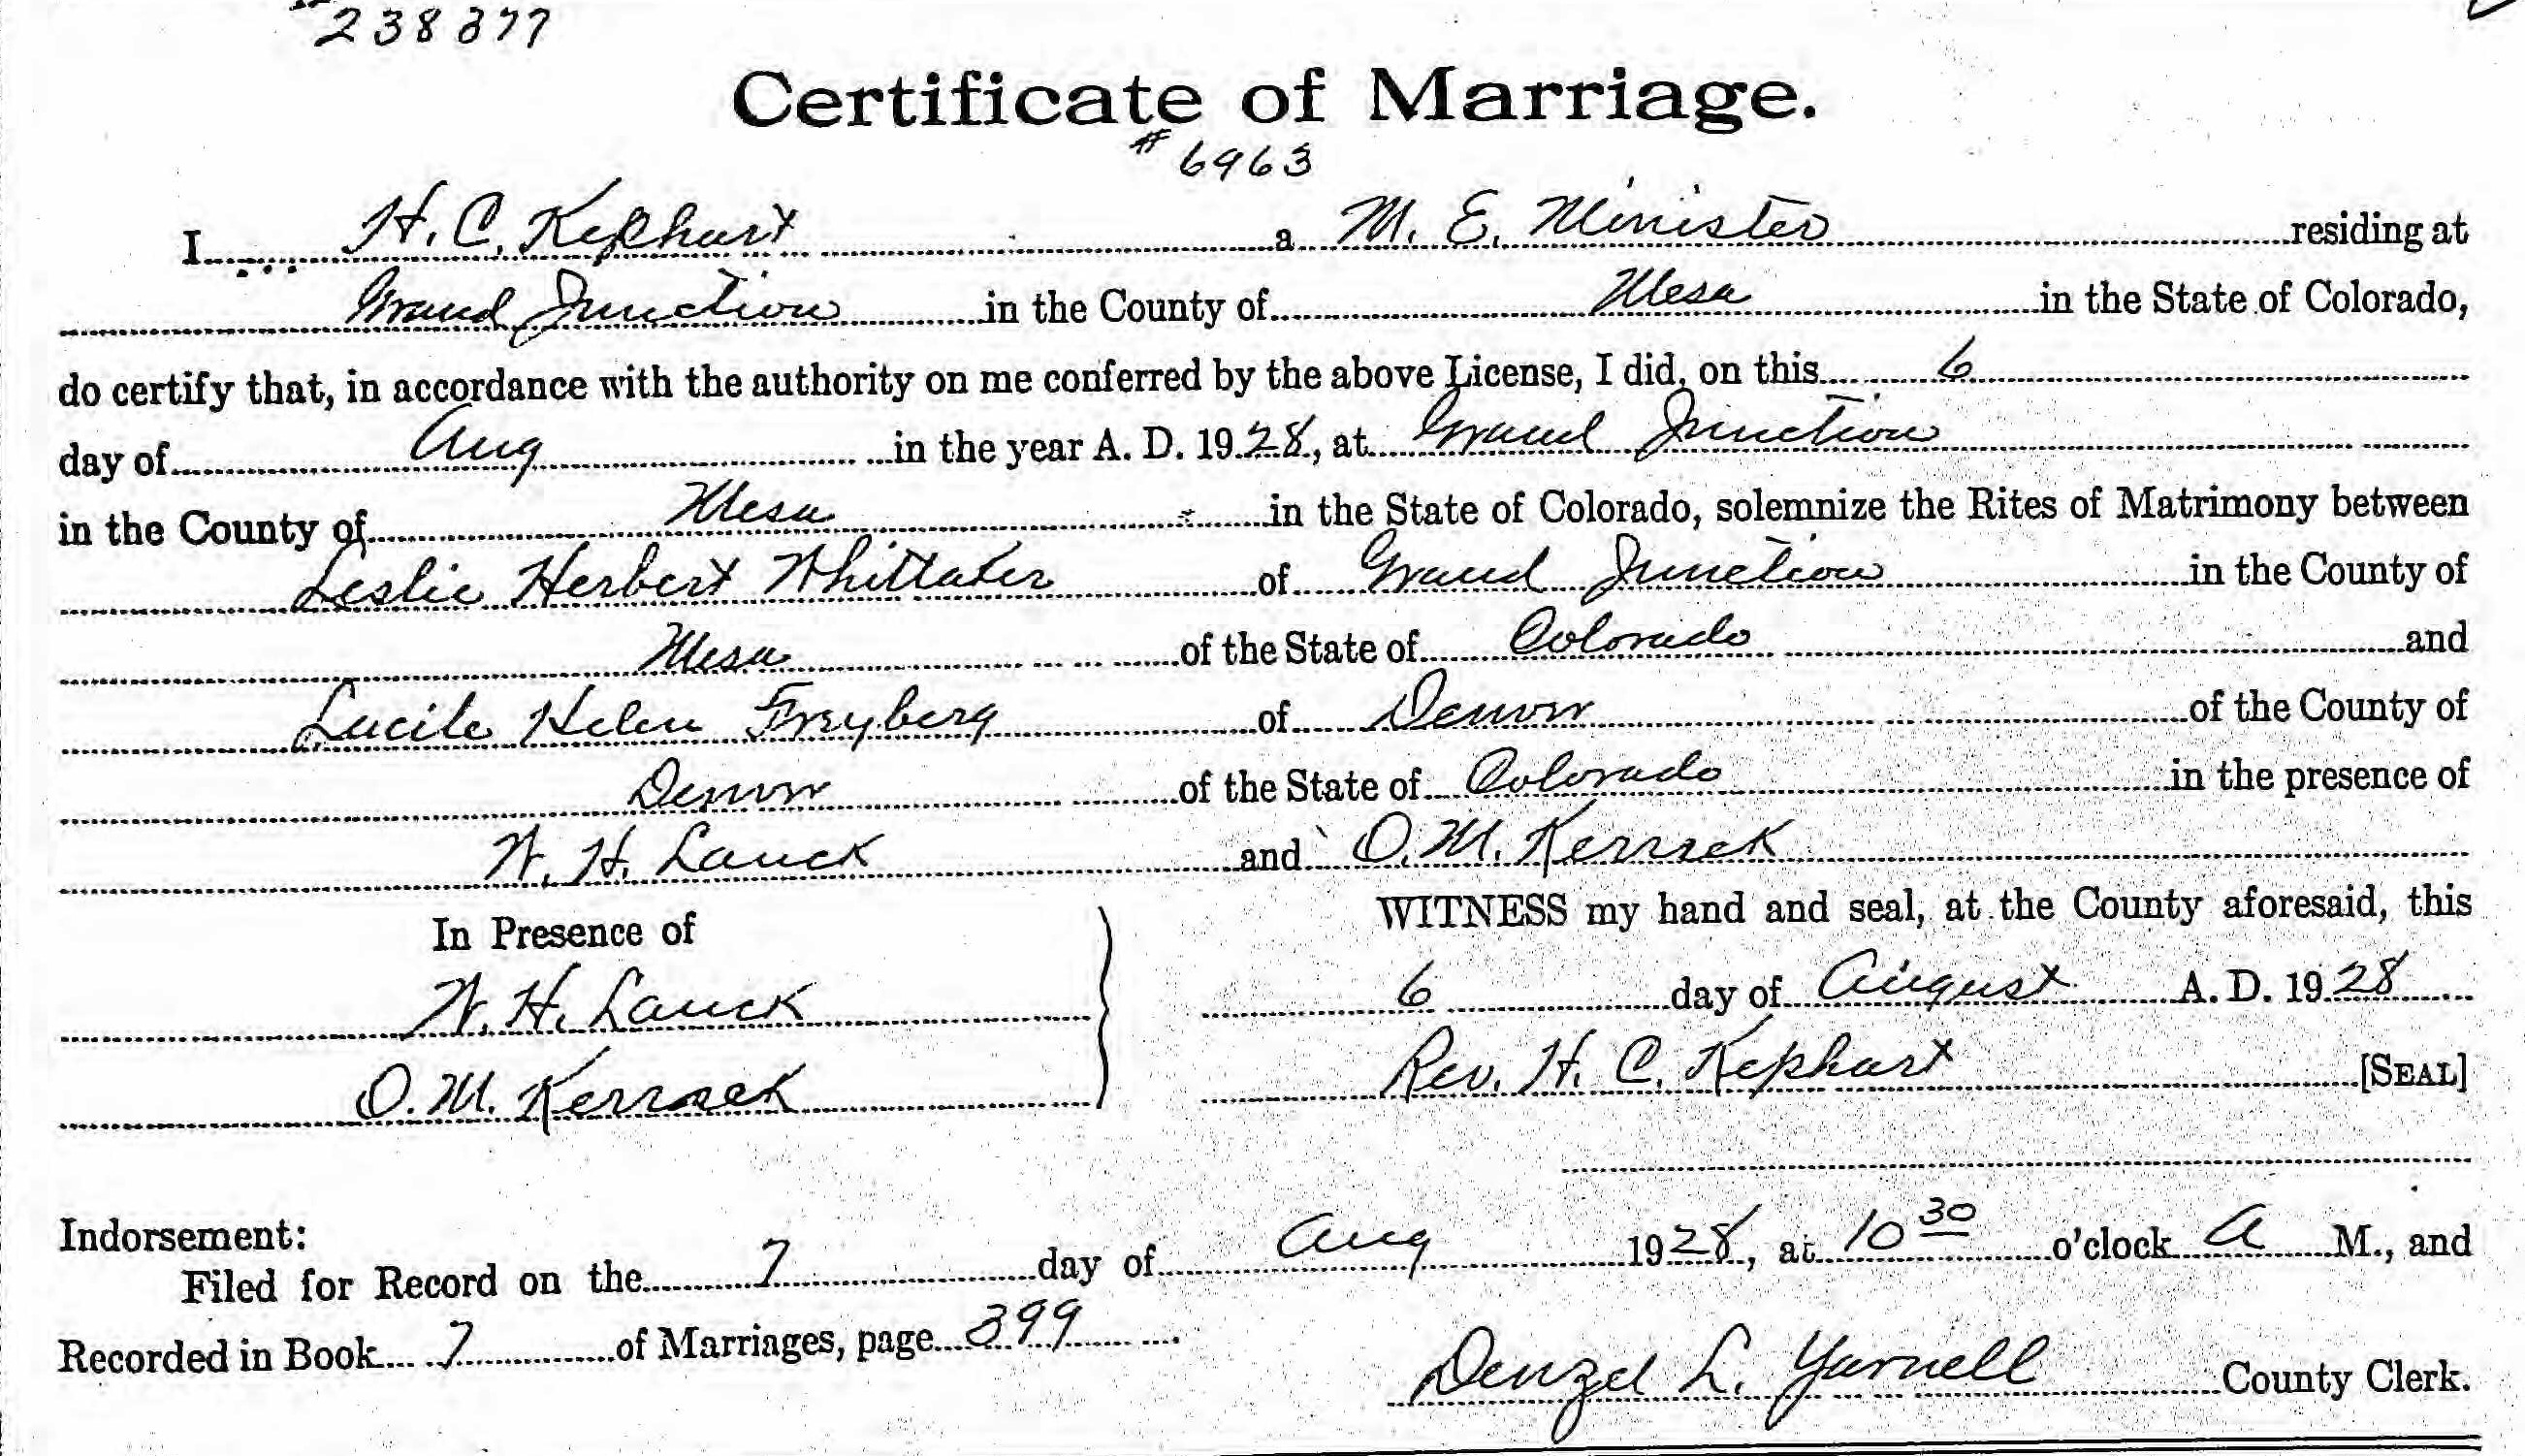 238877
Certificate of Marriage.
# 6963
I H. C. Kephart a M. E. Minister residing at
Grand Junction in the County of Mesa in the State of Colorado,
do certify that, in accordance with the authority on me conferred by the above License, I did, on this 6
day of Aug in the year A. D. 1928, at Grand Junction
in the County of Mesa in the State of Colorado, solemnize the Rites of Matrimony between
Leslie Herbert Whittaker of Grand Junction in the County of
Mesa of the State of Colorado and
Lucile Helen Freyberg of Denver of the County of
Denver of the State of Colorado in the presence of
W. H. Lauck and O. M. Kerrsek
In Presence of
WITNESS my hand and seal, at the County aforesaid, this
W. H. Lauck
6 day of August A. D. 1928
O. M.
Rev. H. C. Kephart [SEAL]
Indorsement:
Filed for Record on the 7 day of Aug 1928, at 10 30 o'clock A M., and
Recorded in Book 7 of Marriages, page 399
Denzel L. Yarnell County Clerk.